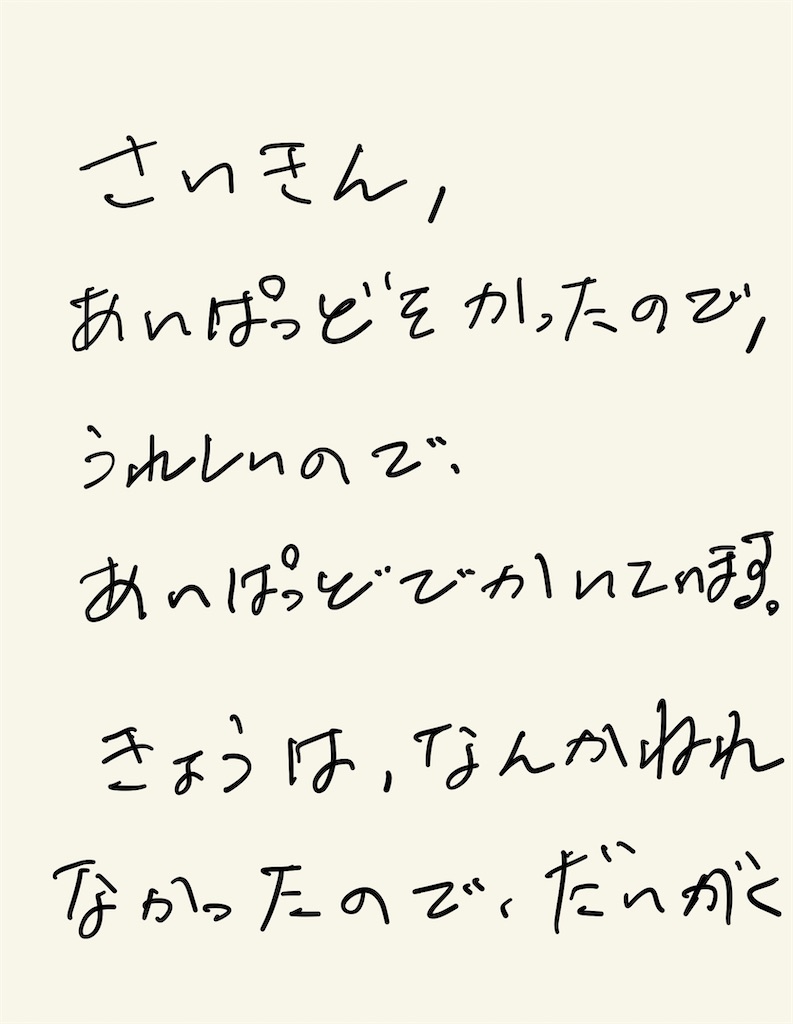 さいきん,
あいぱっどをかったので,
うれしいので、
あいぱっどでかいています。
きょうは,なんかねれ
なかったので、だいがく